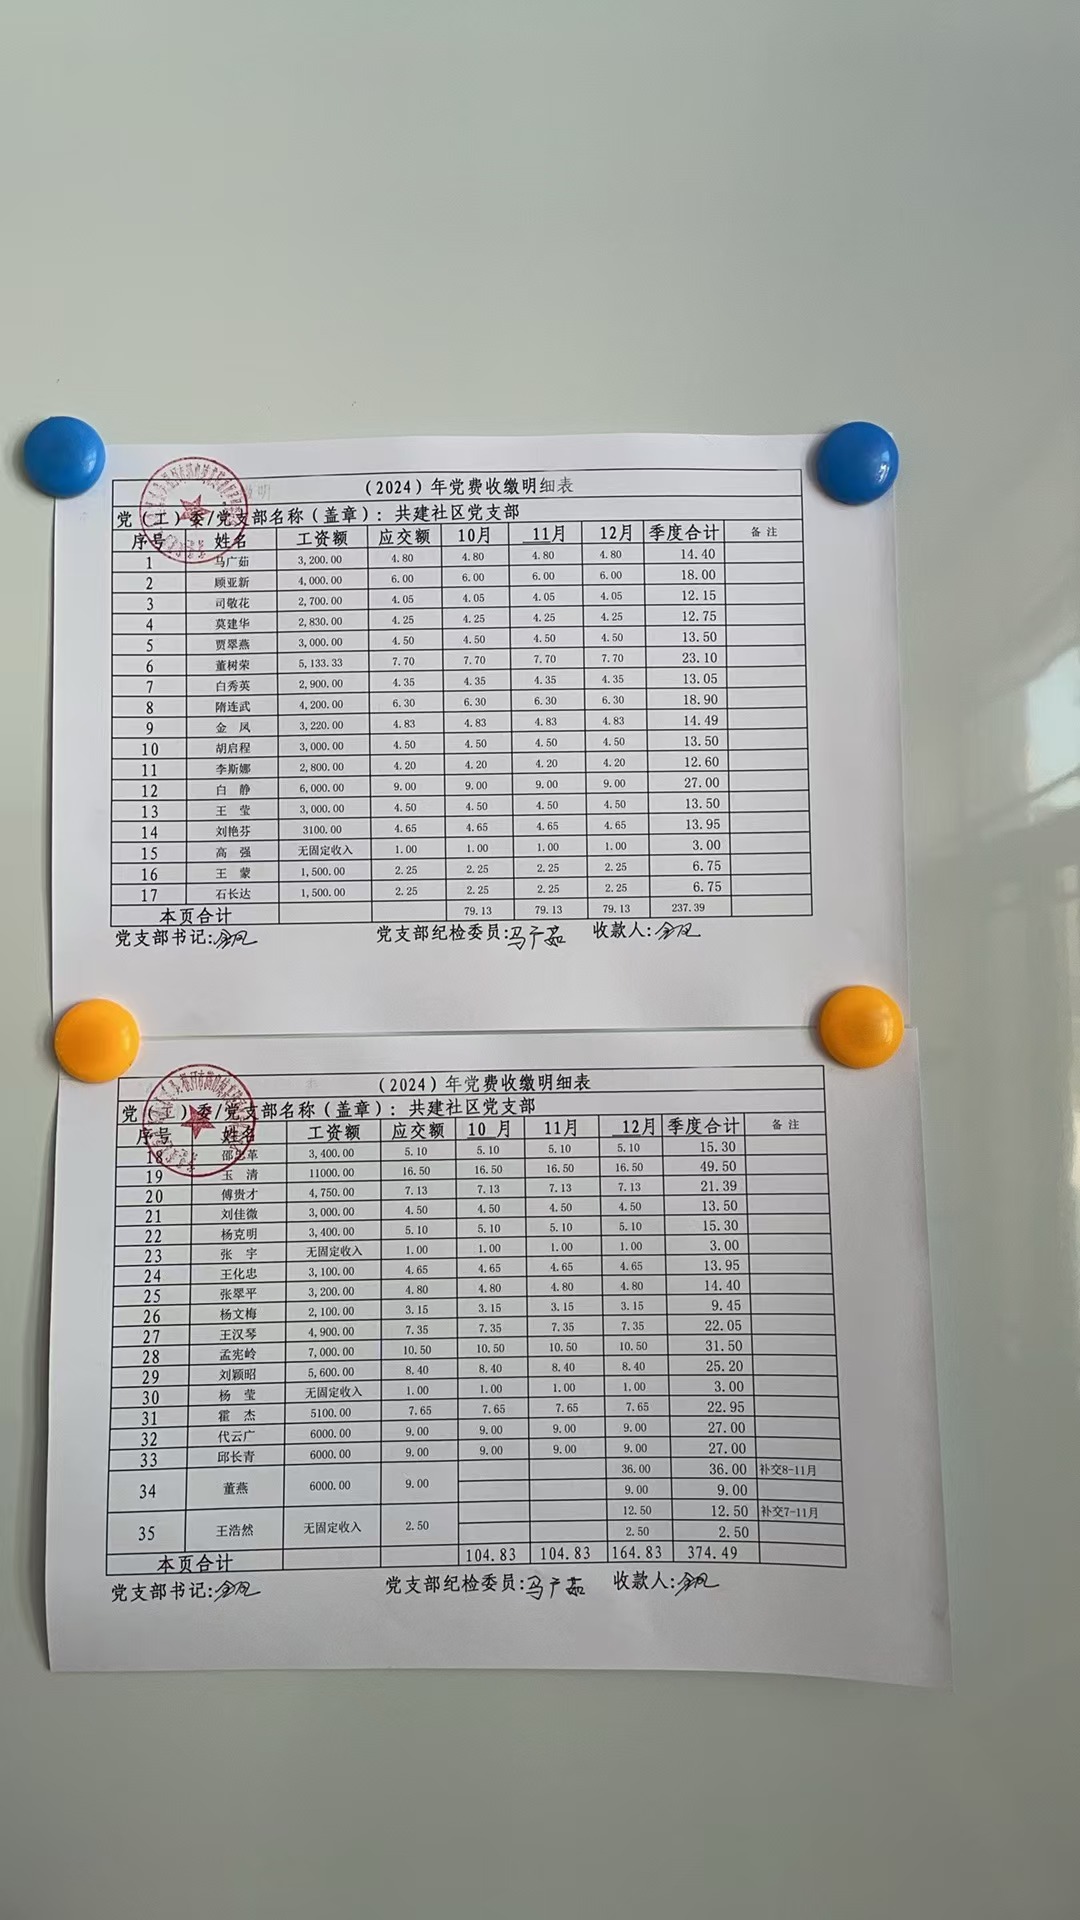 （2024）年党费收缴明细表
党（工）委/党支部名称（盖章）：共建社区党支部
序号 姓名 工资额 应交额 10月 11月 12月 季度合计 备注
1 马广茹 3,200.00 4.80 4.80 4.80 4.80 14.40
2 顾亚新 4,000.00 6.00 6.00 6.00 6.00 18.00
3 司敬花 2,700.00 4.05 4.05 4.05 4.05 12.15
4 莫建华 2,830.00 4.25 4.25 4.25 4.25 12.75
5 贾翠燕 3,000.00 4.50 4.50 4.50 4.50 13.50
6 董树荣 5,133.33 7.70 7.70 7.70 7.70 23.10
7 白秀英 2,900.00 4.35 4.35 4.35 4.35 13.05
8 隋连武 4,200.00 6.30 6.30 6.30 6.30 18.90
9 金 凤 3,220.00 4.83 4.83 4.83 4.83 14.49
10 胡启程 3,000.00 4.50 4.50 4.50 4.50 13.50
11 李斯娜 2,800.00 4.20 4.20 4.20 4.20 12.60
12 白 静 6,000.00 9.00 9.00 9.00 9.00 27.00
13 王 莹 3,000.00 4.50 4.50 4.50 4.50 13.50
14 刘艳芬 3100.00 4.65 4.65 4.65 4.65 13.95
15 高 强 无固定收入 1.00 1.00 1.00 1.00 3.00
16 王 蒙 1,500.00 2.25 2.25 2.25 2.25 6.75
17 石长达 1,500.00 2.25 2.25 2.25 2.25 6.75
本页合计 79.13 79.13 79.13 237.39
党支部书记：金凤 党支部纪检委员：马广茹 收款人：金凤
（2024）年党费收缴明细表
党（工）委/党支部名称（盖章）：共建社区党支部
序号 姓名 工资额 应交额 10月 11月 12月 季度合计 备注
18 邵忠革 3,400.00 5.10 5.10 5.10 5.10 15.30
19 玉 清 11000.00 16.50 16.50 16.50 16.50 49.50
20 傅贵才 4,750.00 7.13 7.13 7.13 7.13 21.39
21 刘佳微 3,000.00 4.50 4.50 4.50 4.50 13.50
22 杨克明 3,400.00 5.10 5.10 5.10 5.10 15.30
23 张 宇 无固定收入 1.00 1.00 1.00 1.00 3.00
24 王化忠 3,100.00 4.65 4.65 4.65 4.65 13.95
25 张翠平 3,200.00 4.80 4.80 4.80 4.80 14.40
26 杨文梅 2,100.00 3.15 3.15 3.15 3.15 9.45
27 王汉琴 4,900.00 7.35 7.35 7.35 7.35 22.05
28 孟宪岭 7,000.00 10.50 10.50 10.50 10.50 31.50
29 刘颖昭 5,600.00 8.40 8.40 8.40 8.40 25.20
30 杨 莹 无固定收入 1.00 1.00 1.00 1.00 3.00
31 霍 杰 5100.00 7.65 7.65 7.65 7.65 22.95
32 代云广 6000.00 9.00 9.00 9.00 9.00 27.00
33 邱长青 6000.00 9.00 9.00 9.00 9.00 27.00
34 董燕 6000.00 9.00 36.00 36.00 补交8-11月
9.00 9.00
35 王浩然 无固定收入 2.50 12.50 12.50 补交7-11月
2.50 2.50
本页合计 104.83 104.83 164.83 374.49
党支部书记：金凤 党支部纪检委员：马广茹 收款人：金凤